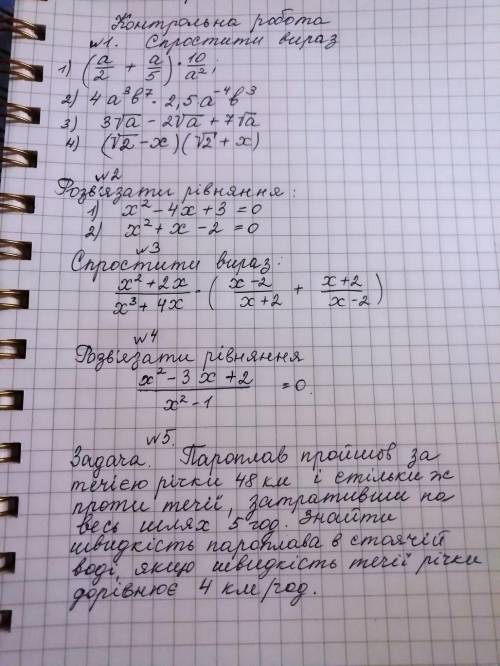 Контрольна робота
№1. Спростити вираз
1) (a/2 + a/5) · 10/a²;
2) 4a³b⁷ · 2,5a⁻⁴b³
3) 3√a - 2√a + 7√a
4) (√2 - x)(√2 + x)
№2
Розв'язати рівняння:
1) x² - 4x + 3 = 0
2) x² + x - 2 = 0
№3
Спростити вираз:
(x² + 2x)/(x³ + 4x) · ((x - 2)/(x + 2) + (x + 2)/(x - 2))
№4
Розв'язати рівняння
(x² - 3x + 2)/(x² - 1) = 0.
№5.
Задача. Пароплав пройшов за
течією річки 48 км і стільки ж
проти течії, затративши на
весь шлях 5 год. Знайти
швидкість пароплава в стоячій
воді якщо швидкість течії річки
дорівнює 4 км/год.